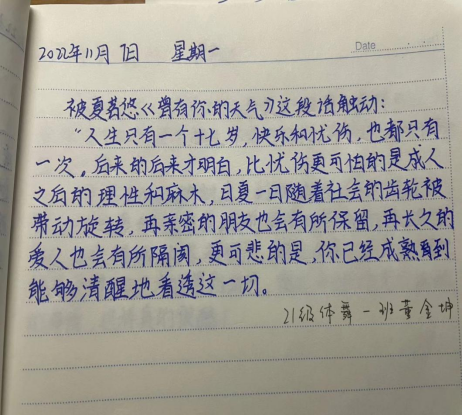 2022年11月7日 星期一
Date
被夏茗悠《曾有你的天气》这段话触动：
“人生只有一个十七岁，快乐和忧伤，也都只有
一次。后来的后来才明白，比忧伤更可怕的是成人
之后的理性和麻木，日复一日随着社会的齿轮被
带动旋转，再亲密的朋友也会有所保留，再长久的
爱人也会有所隔阂，更可悲的是，你已经成熟到
能够清醒地看透这一切。
21级体舞一班董金坤